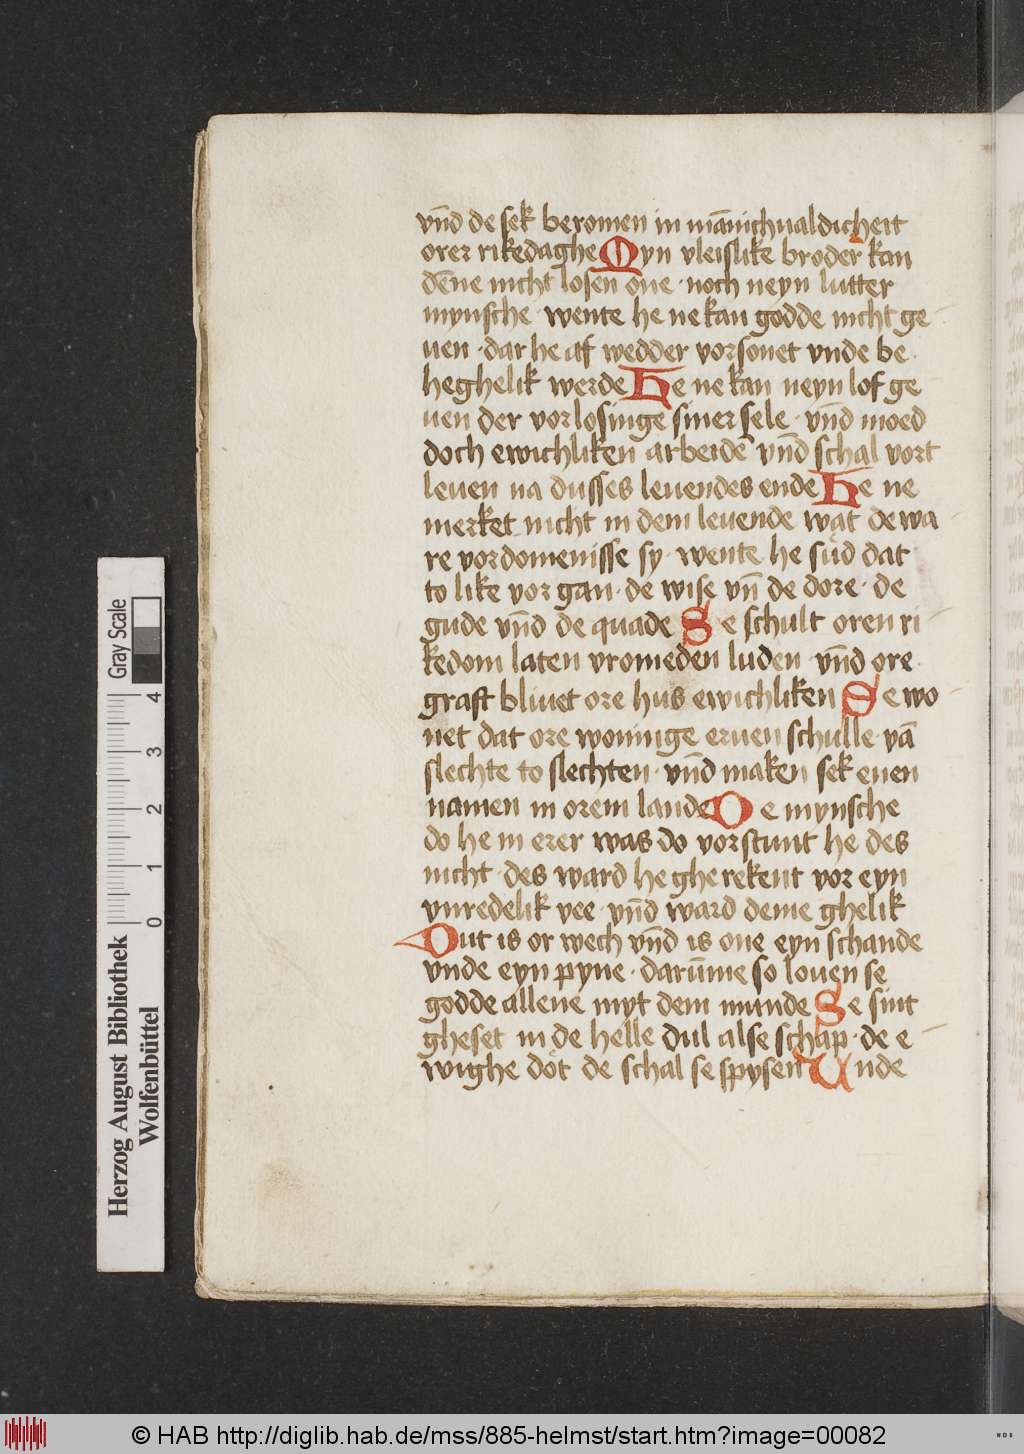 vn̄d de sek beromen in mānichualdicheit
orer rikedaghe Myn vleislike broder kan
dēne nicht losen one · noch neyn lutter
mynsche · wente he ne kan godde nicht ge
uen · dar he af wedder vorsonet vnde be
heghelik werde He ne kan neyn lof ge
uen der vorlosinge siner sele · vn̄d moed
doch ewichliken arbeidē vn̄d schal vort
leuen na dusses leuendes ende He ne
merket nicht in dem leuende wat de wa
re vordomenisse sy · wente he sud dat
to like vor gan · de wise vn̄ de dore · de
gude vn̄d de quade Se schult oren ri
kedom laten vromeden luden · vn̄d ore
graft bliuet ore hus ewichliken Se wo
net dat ore woninge eruen schulle vā
slechte to slechten · vn̄d maken sek euen
namen in orem lande De mynsche
do he in erer was do vorstunt he des
nicht · des ward he gherekent vor eyn
vnredelik vee · vn̄d ward deme ghelik
Dut is or wech vn̄d is one eyn schande
vnde eyn pyne · darūme so louen se
godde allene myt dem munde Se sint
gheset in de helle dul alse schap · de e
wighe dot de schal se spysen Unde
Herzog August Bibliothek
Wolfenbüttel
0 1 2 3 4
Gray Scale
© HAB http://diglib.hab.de/mss/885-helmst/start.htm?image=00082
WDB